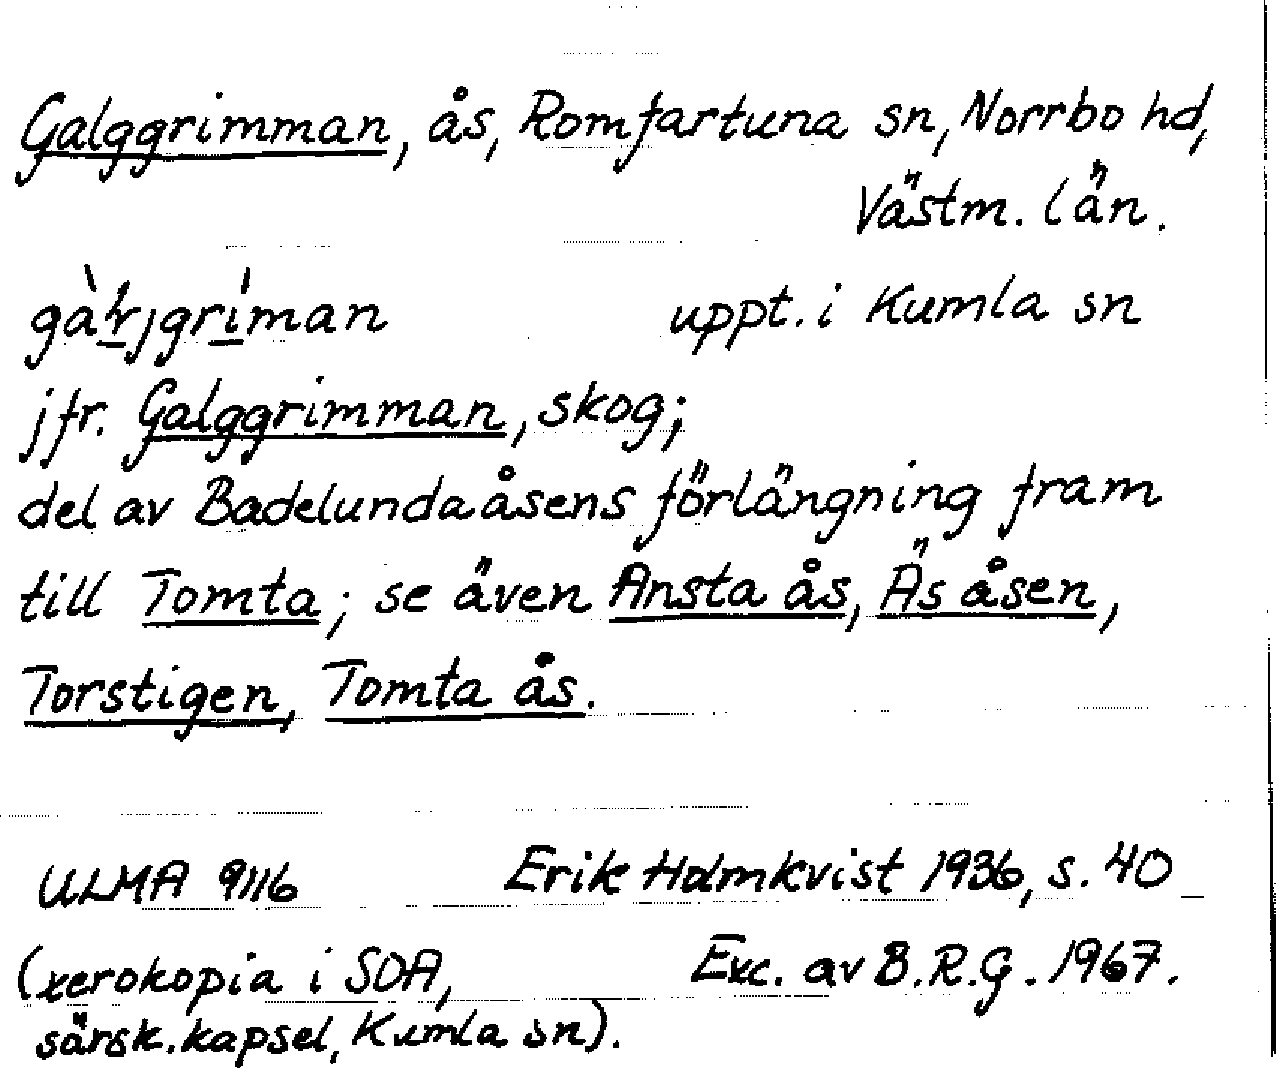 Galggrimman, ås, Romfartuna sn, Norrbo hd,
Västm. län.
uppt. i Kumla sn
jfr. Galggrimman, skog;
del av Badelundaåsens förlängning fram
till Tomta; se även Ansta ås, Äs åsen,
Torstigen, Tomta ås.
ULMA 9116 Erik Holmkvist 1936, s. 40
(xerokopia i SOA, Exc. av B.R.G. 1967.
särsk. kapsel, Kumla sn).